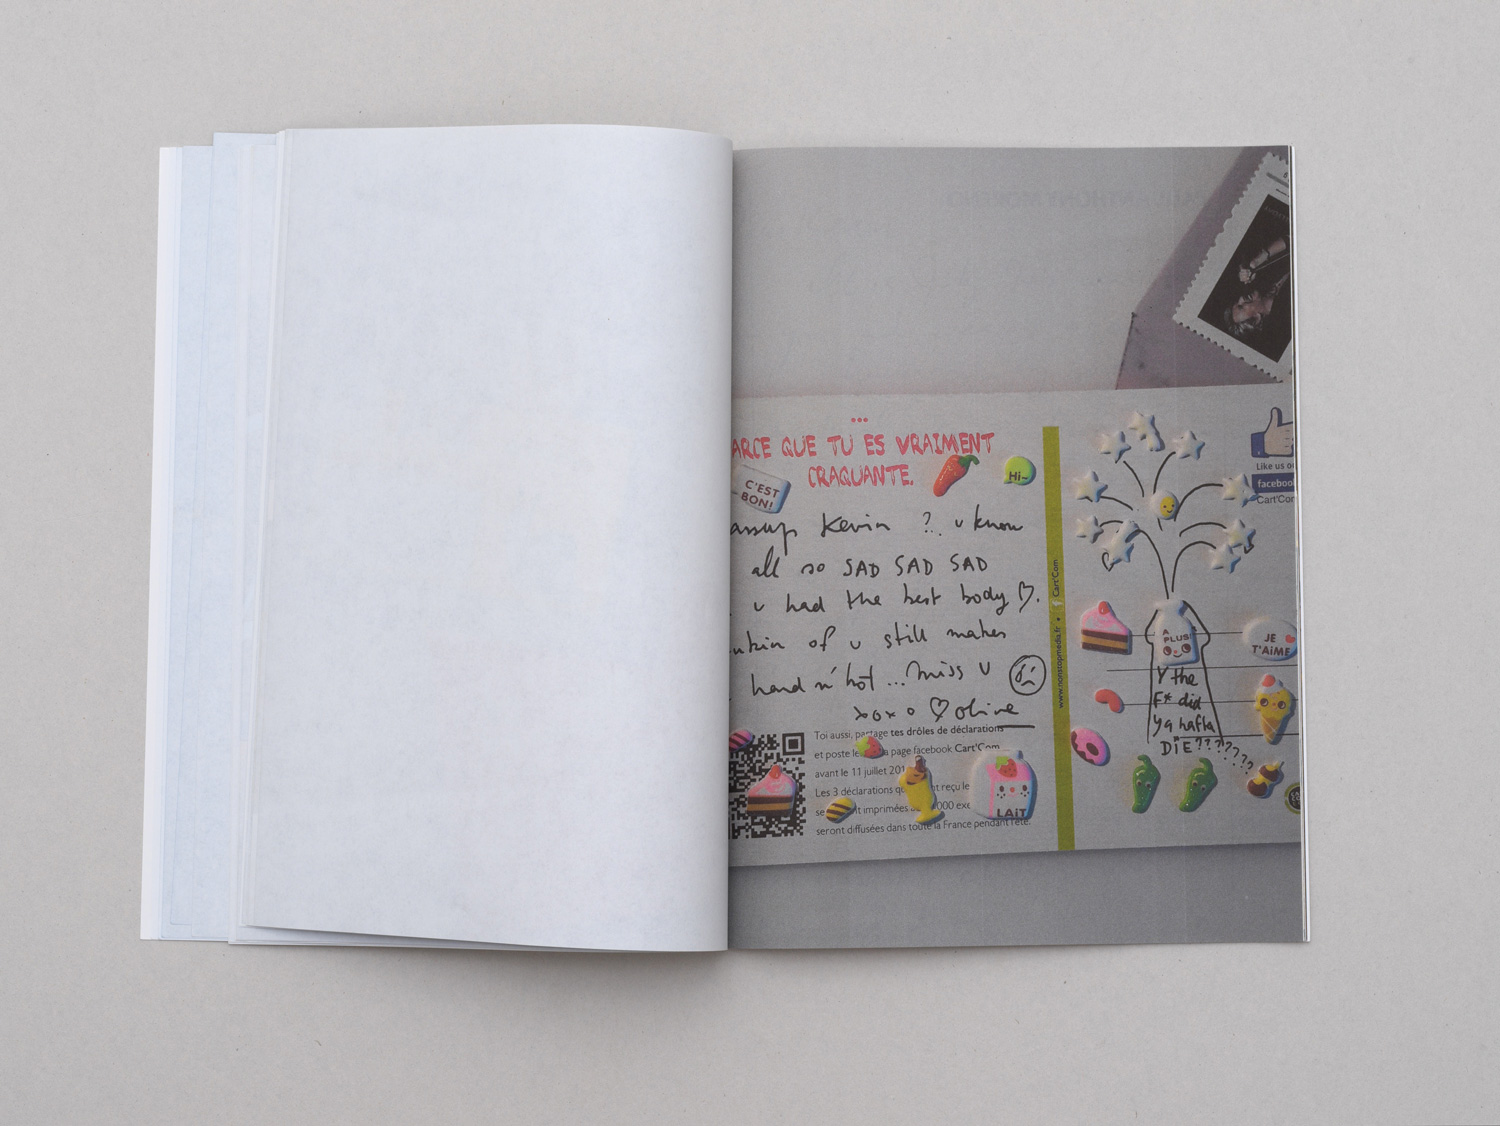 ...
ARCE QUE TU ES VRAIMENT
CRAQUANTE.
C'EST
BON!
Hi~
assup Kevin ? u know
all so SAD SAD SAD
u had the best body ♡.
of u still makes
hard n' hot ... miss u
xoxo ♡ olive
Toi aussi, partage tes drôles de déclarations
et poste le page facebook Cart'Com
avant le 11 juillet 201
Les 3 déclarations qu nt reçu le
se nt imprimées 000 exe
seront diffusées dans toute la France pendant l'été.
LAiT
www.nonstopmedia.fr • Cart'Com
Like us o
facebook
Cart'Com
A
PLUS
JE
T'AiME
Y the
F* did
ya hafta
DiE???????